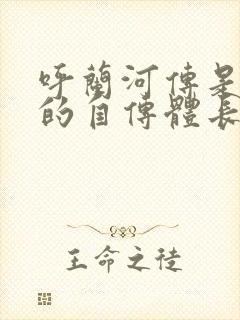 呼蘭河傳是
的自傳體長
王命之徒